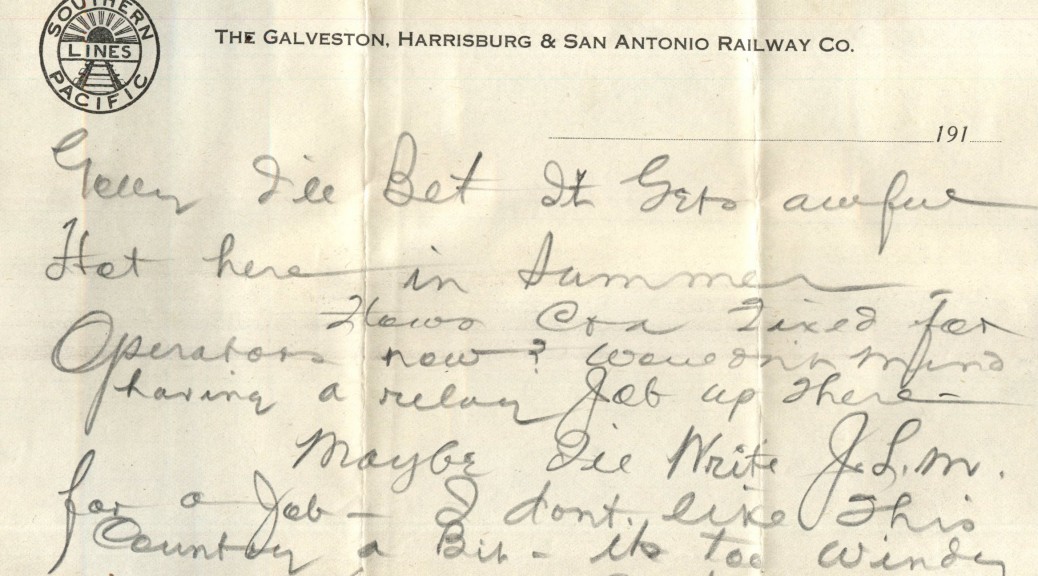 SOUTHERN
LINES
PACIFIC
THE GALVESTON, HARRISBURG & SAN ANTONIO RAILWAY CO.
191
Golly I'll Bet It Gets awful
Hot here in Summer
Hows Fixed for
Operators now? Wouldnt mind
having a relay Job up there-
Maybe I'll Write J.L.M.
for a Job - I dont like This
Country a Bit - its too windy